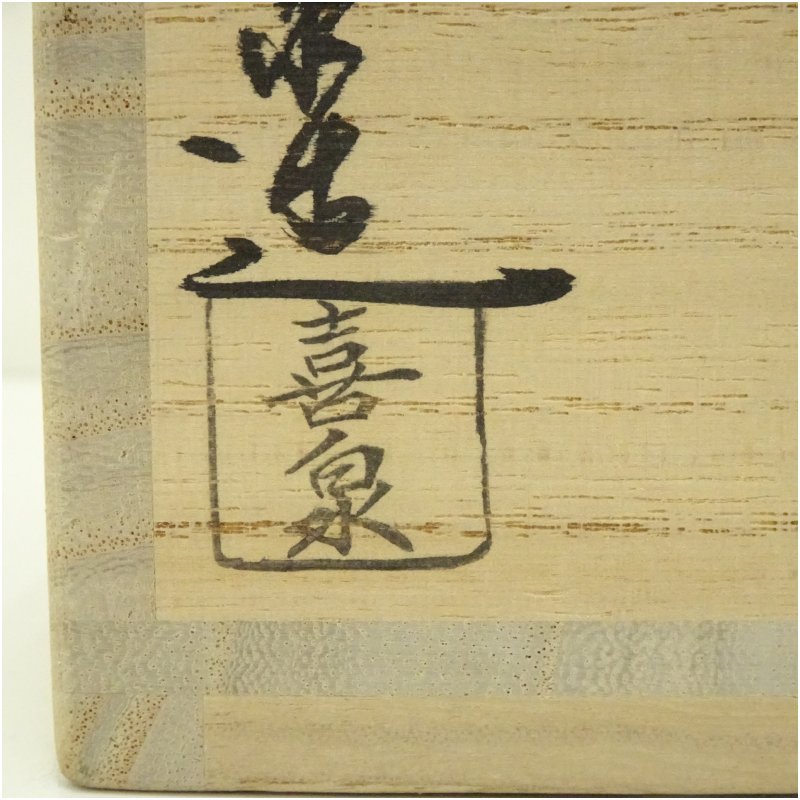 造
喜泉